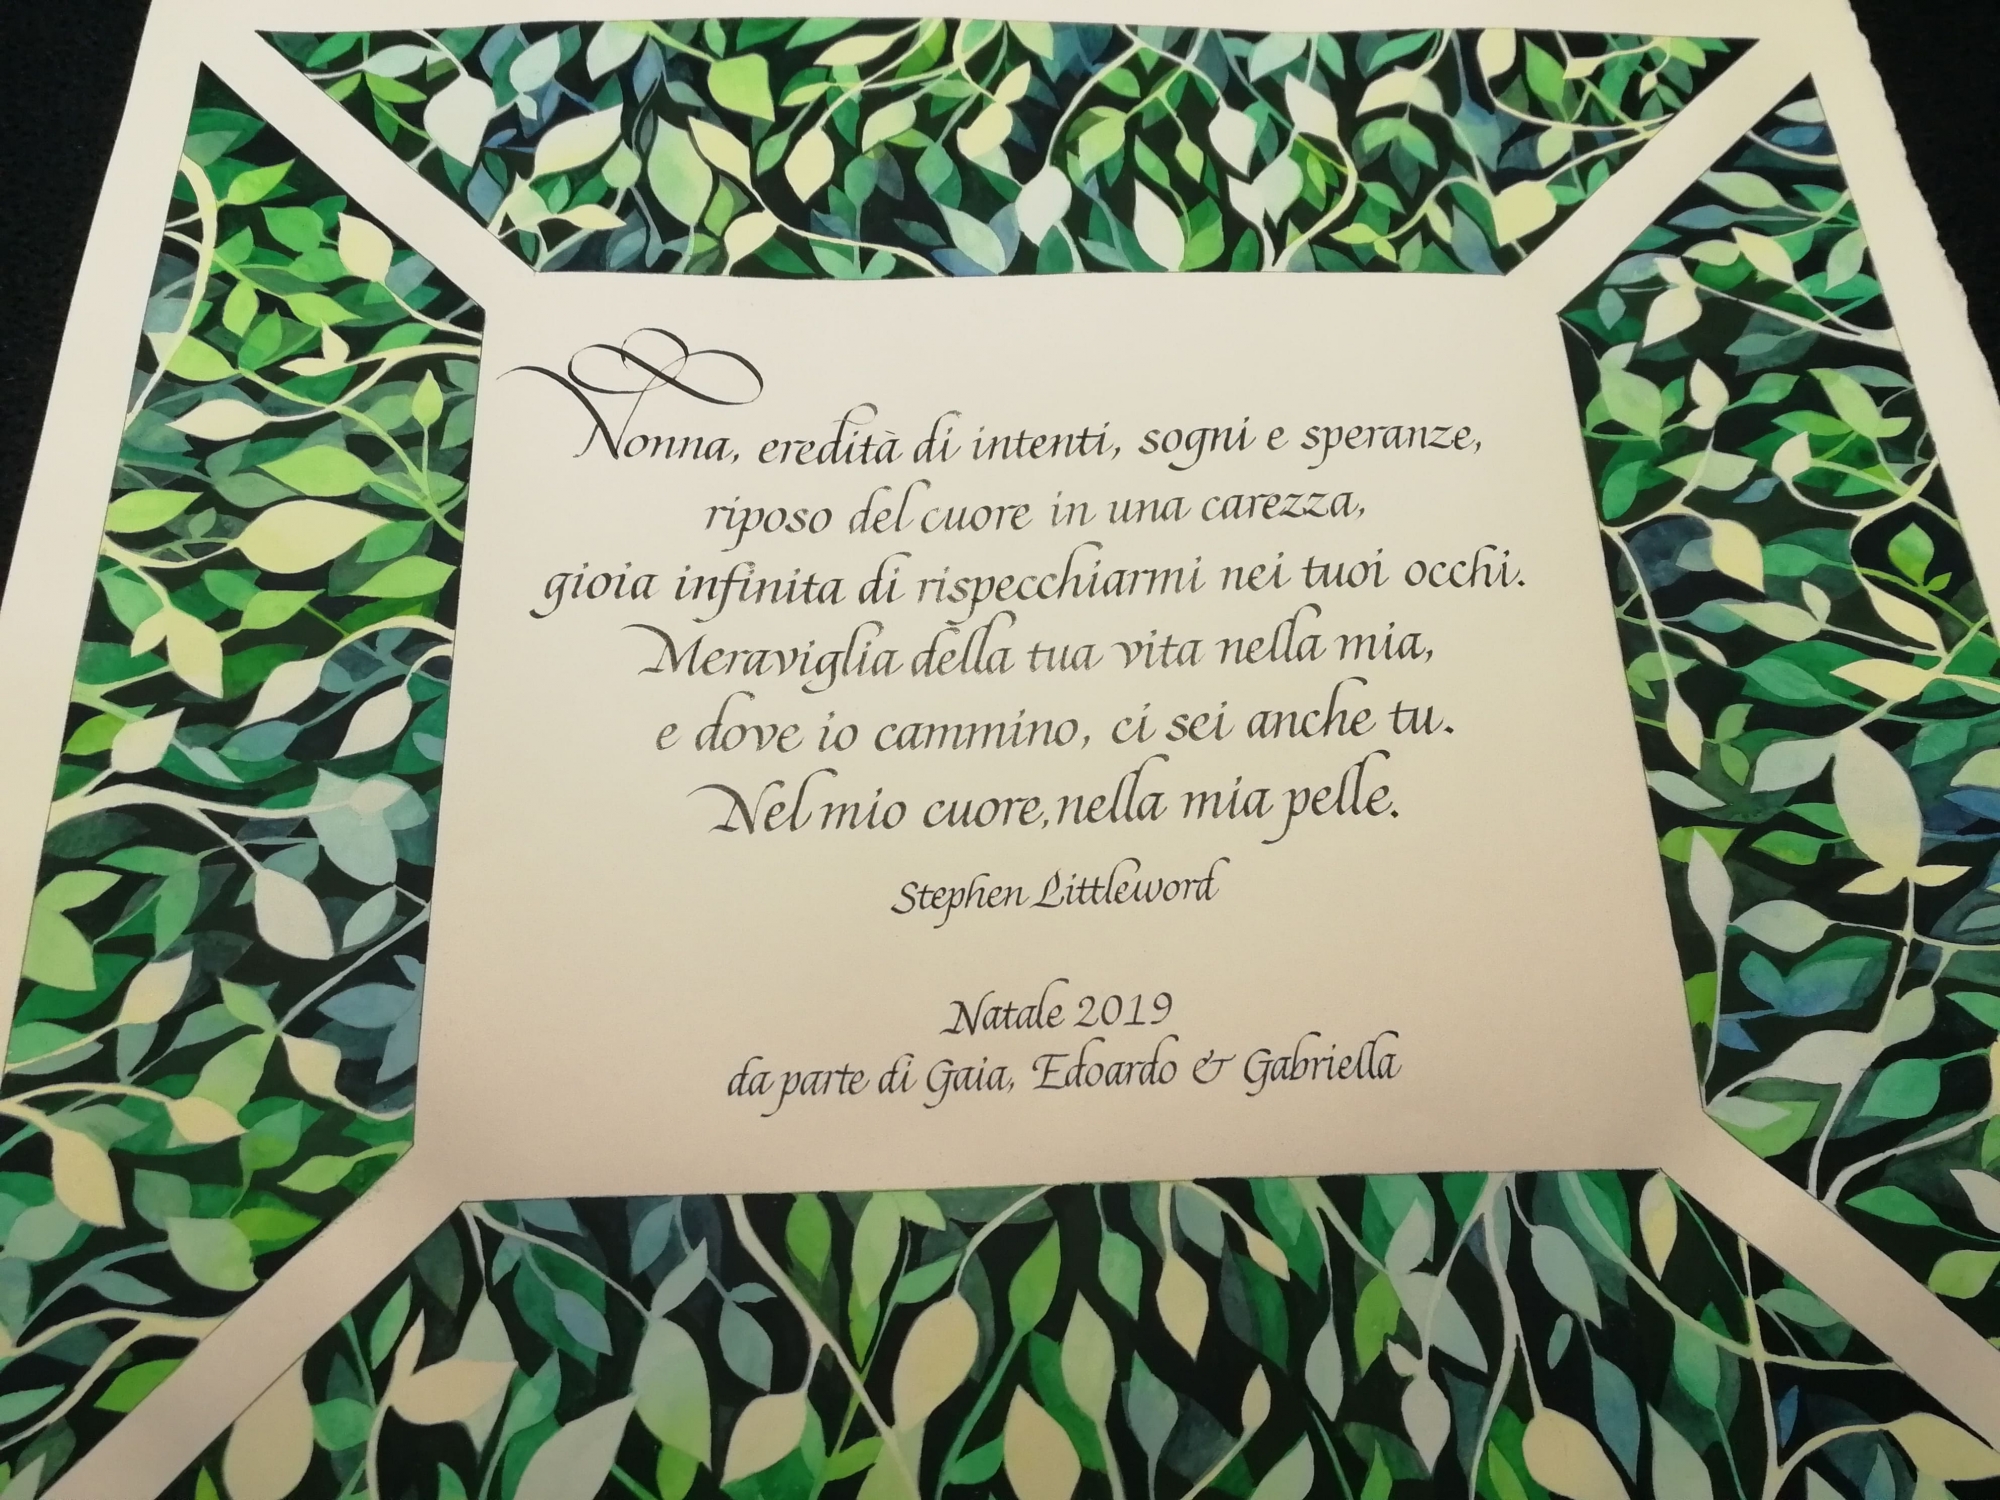 Nonna, eredità di intenti, sogni e speranze,
riposo del cuore in una carezza,
gioia infinita di rispecchiarmi nei tuoi occhi.
Meraviglia della tua vita nella mia,
e dove io cammino, ci sei anche tu.
Nel mio cuore, nella mia pelle.
Stephen Littleword
Natale 2019
da parte di Gaia, Edoardo & Gabriella